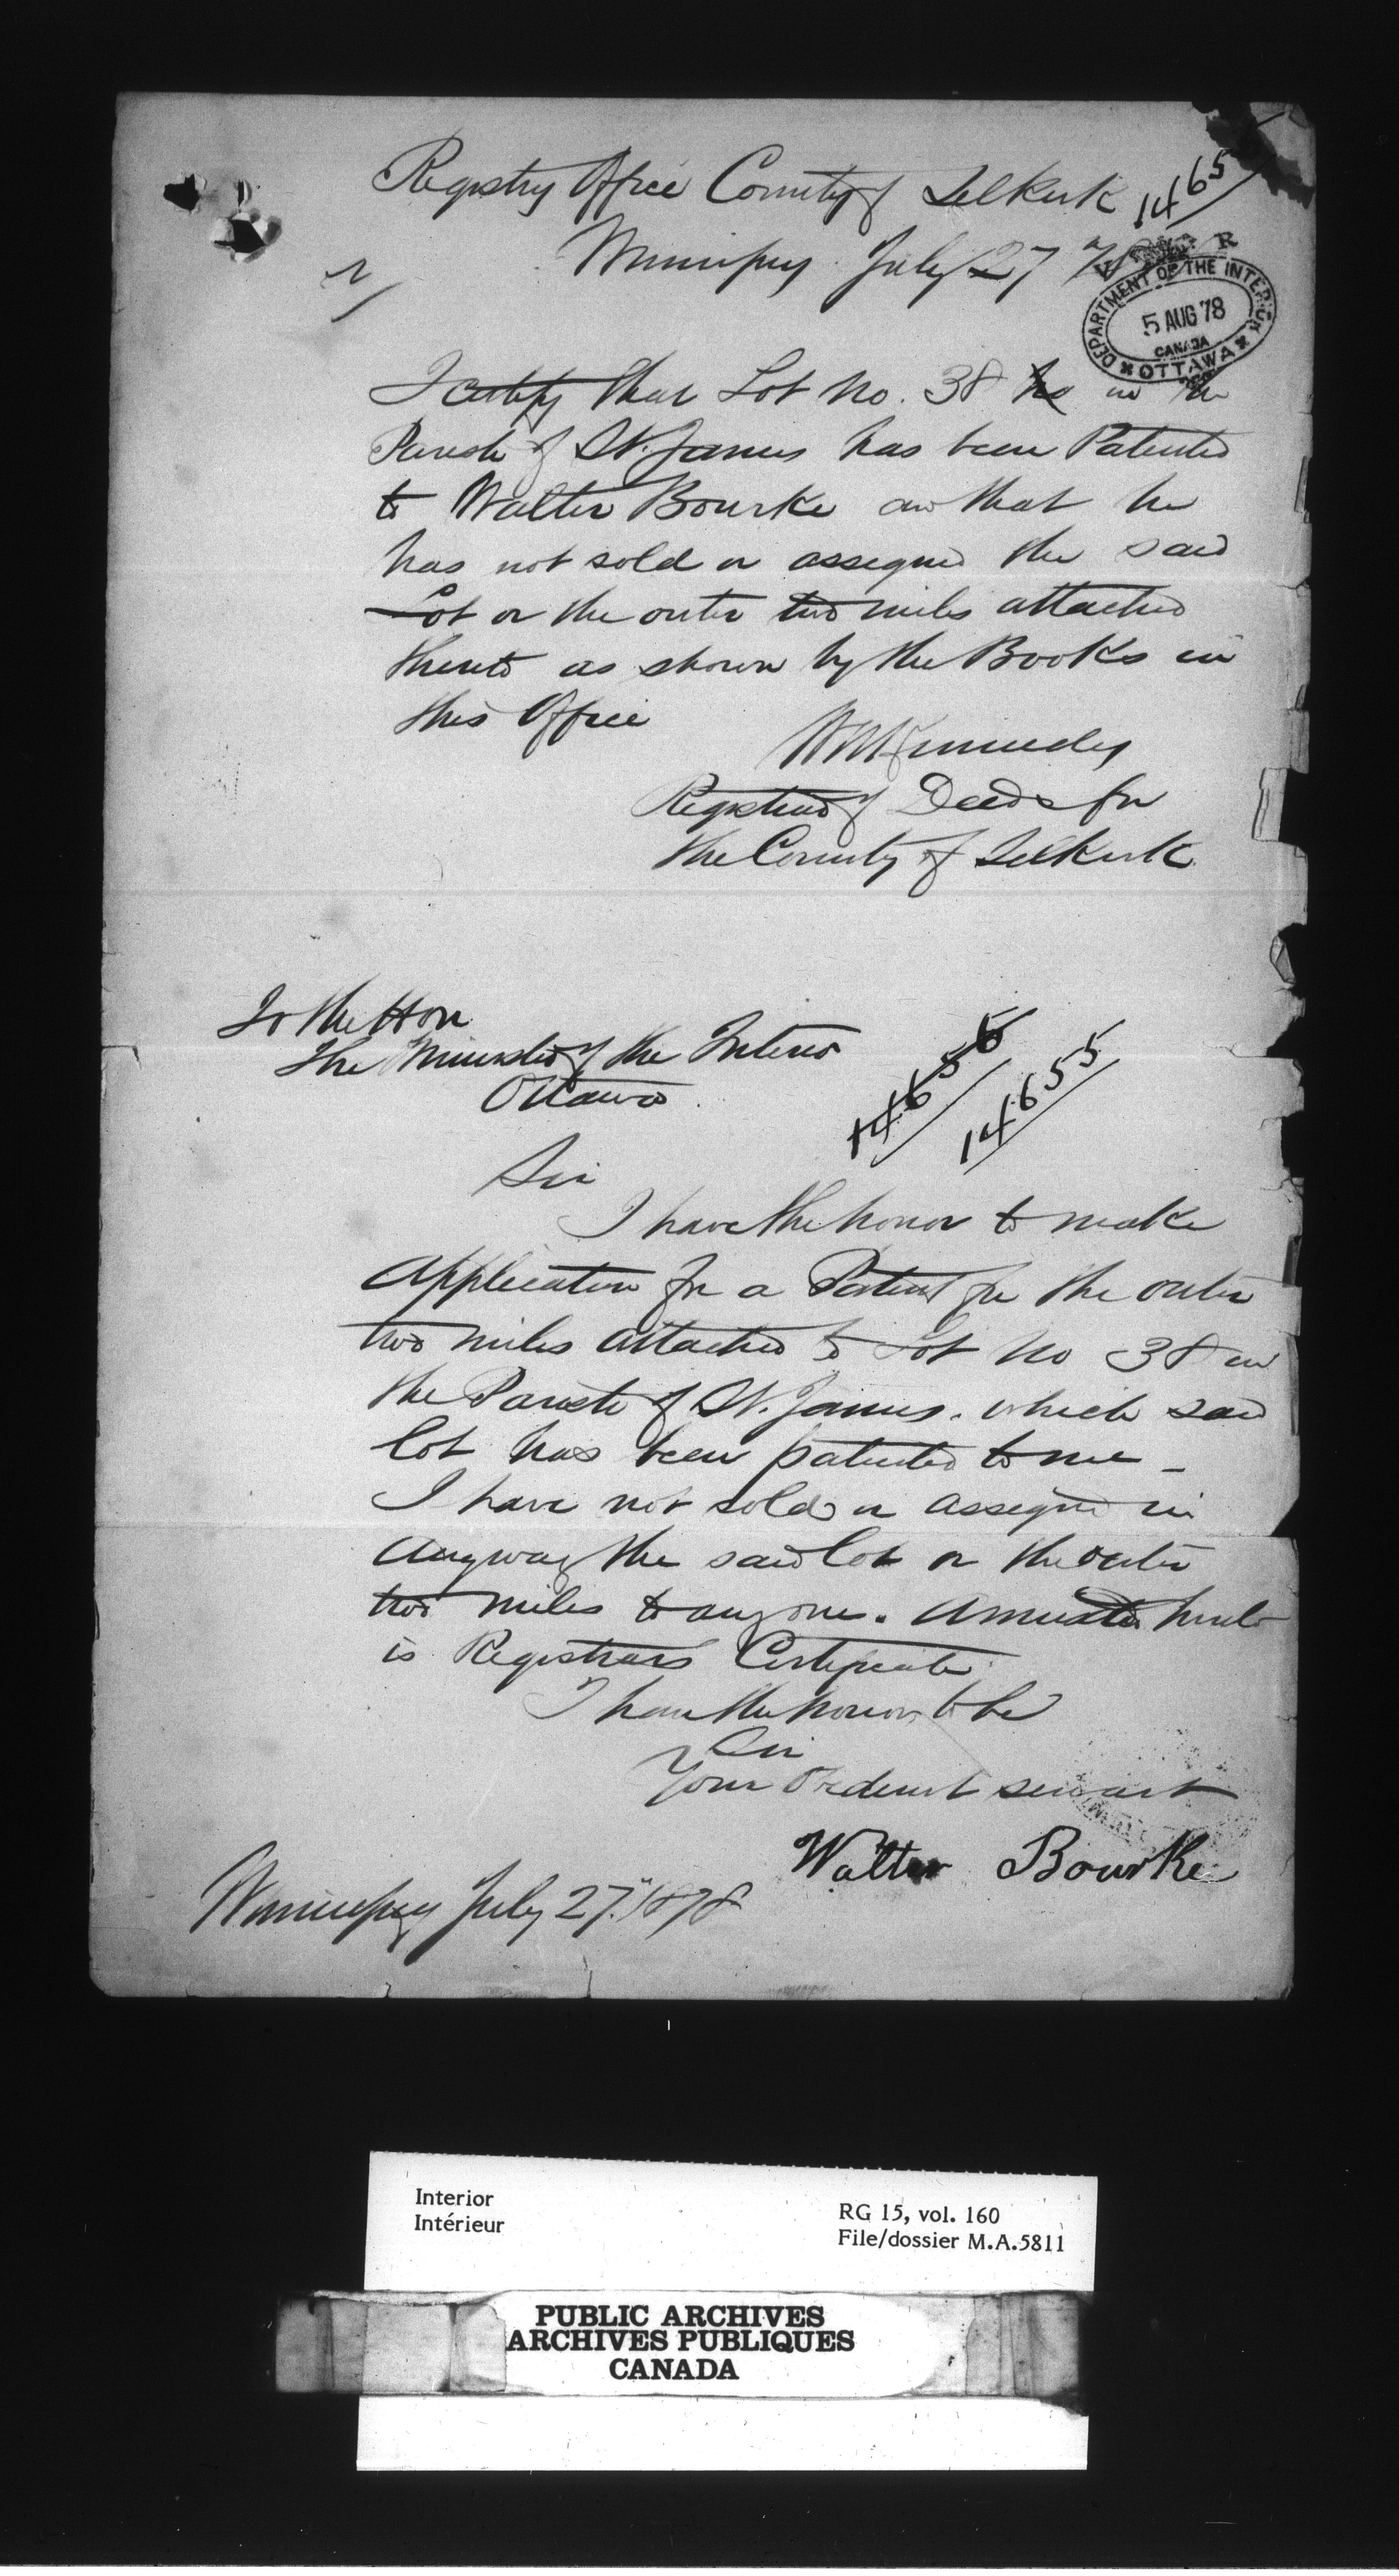 Registry Office County of Selkirk
1465
Winnipeg July 27
V R
DEPARTMENT OF THE INTERIOR
5 AUG 78
CANADA
OTTAWA
I certify that Lot No. 38 in the
Parish of St. James has been Patented
to Walter Bourke and that he
has not sold or assigned the said
Lot or the outer two miles attached
thereto as shown by the Books in
this Office
WKennedy
Registrar of Deeds for
the County of Selkirk
To the Hon
The Minister of the Interior
Ottawa
14656
14655
Sir
I have the honor to make
application for a Patent for the outer
two miles attached to Lot No 38 in
the Parish of St. James. which said
lot has been patented to me –
I have not sold or assigned in
anyway the said lot or the outer
two miles to anyone. Annexed hereto
is Registrars Certificate
I have the honor to be
Sir
Your Obedient servant
Walter Bourke
Winnipeg July 27th 1878
Interior
Intérieur
RG 15, vol. 160
File/dossier M.A.5811
PUBLIC ARCHIVES
ARCHIVES PUBLIQUES
CANADA